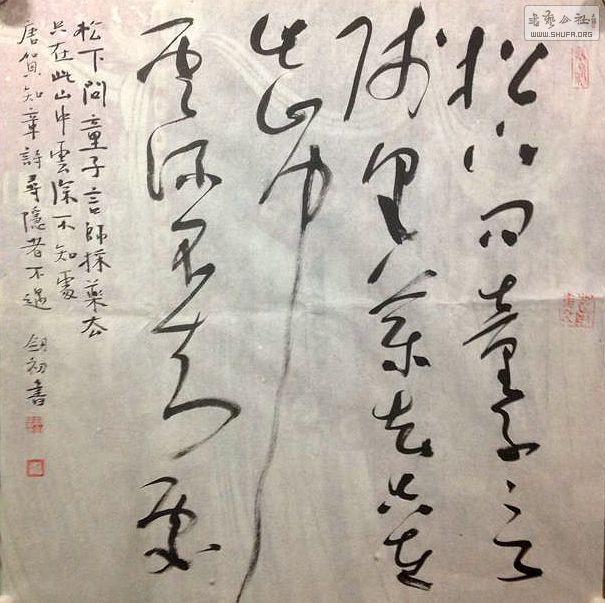 松下问童子言
师采药去只在
此山中
云深不知处
松下問童子言師採藥去
只在此山中雲深不知處
唐賀知章詩尋隱者不遇 剑初書
書艺公社
WWW.SHUFA.ORG